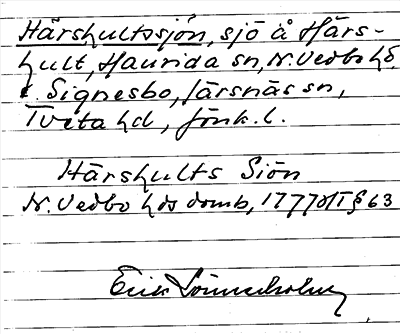 Härshultssjön, sjö å Härs-
hult, Haurida sn, N. Vedbo hd,
o. Signesbo, Järsnäs sn,
Tveta hd, Jönk. l.
Härshults Siön
N. Vedbo hds domb, 1777 § 63
Erik